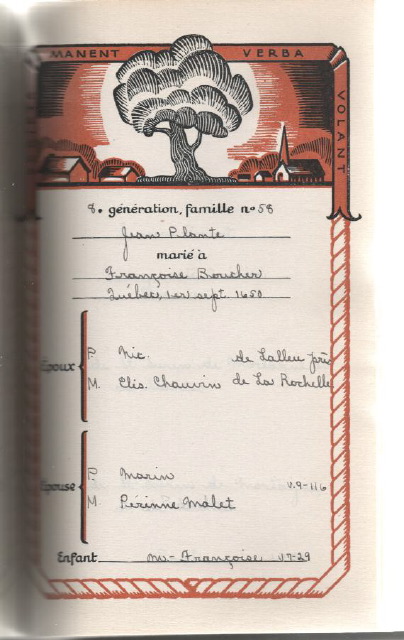 MANENT VERBA
VOLANT
8. génération, famille no 58
Jean Plante
marié à
Françoise Boucher
Québec, 1er sept. 1650
Époux
P. Nic. de Lalleu près
M. Elis. Chauvin de La Rochelle
Épouse
P. Marin v.9-116
M. Périnne Malet
Enfant m.-Françoise v.7-29